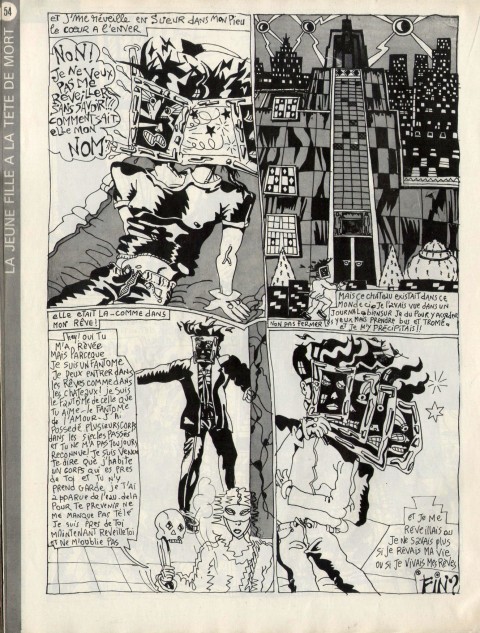 54
LA JEUNE FILLE A LA TETE DE MORT
ET J'ME RÉVEILLE EN SUEUR DANS MON PIEU
LE COEUR A L'ENVER
NON!
JE NE VEUX
PAS ME
RÉVEILLER
SANS SAVOIR!!
COMMENT SAIT
ELLE MON
NOM?
MAIS CE CHATEAU EXISTAIT DANS CE
MONDE CI. JE L'AVAIS VUE DANS UN
JOURNAL. BIEN SUR JE DU POUR Y ACCÉDER
NON PAS FERMER LES YEUX, MAIS PRENDRE BUS ET TROMÉ.
ET JE M'Y PRÉCIPITAIS!!
ELLE ETAIT LA-COMME DANS
MON RÊVE!
HEY! OUI TU
M'A RÊVÉE
MAIS PARCEQUE
JE SUIS UN FANTOME
JE PEUX ENTRER DANS
LES RÊVES COMME DANS
LES CHATEAUX! JE SUIS
LE FANTOME DE CELLE QUE
TU AIME-LE FANTOME
DE L'AMOUR-J'AI
POSSÉDÉ PLUSIEURS CORPS
DANS LES SIECLES PASSÉS
ET TU NE M'A PAS TOUJOURS
RECONNUE! JE SUIS VENUE
TE DIRE QUE J'HABITE
UN CORPS QUI ES PRES
DE TOI ET TU N'Y
PREND GARDE, JE T'AI
APPARUE DE L'EAU-DELA
POUR TE PREVENIR NE
ME MANQUE PAS TÉLÉ
JE SUIS PRES DE TOI
MAINTENANT REVEILLE TOI
ET NE M'OUBLIE PAS
ET JE ME
RÉVEILLAIS OU
JE NE SAVAIS PLUS
SI JE RÊVAIS MA VIE
OU SI JE VIVAIS MES RÊVES
FIN?